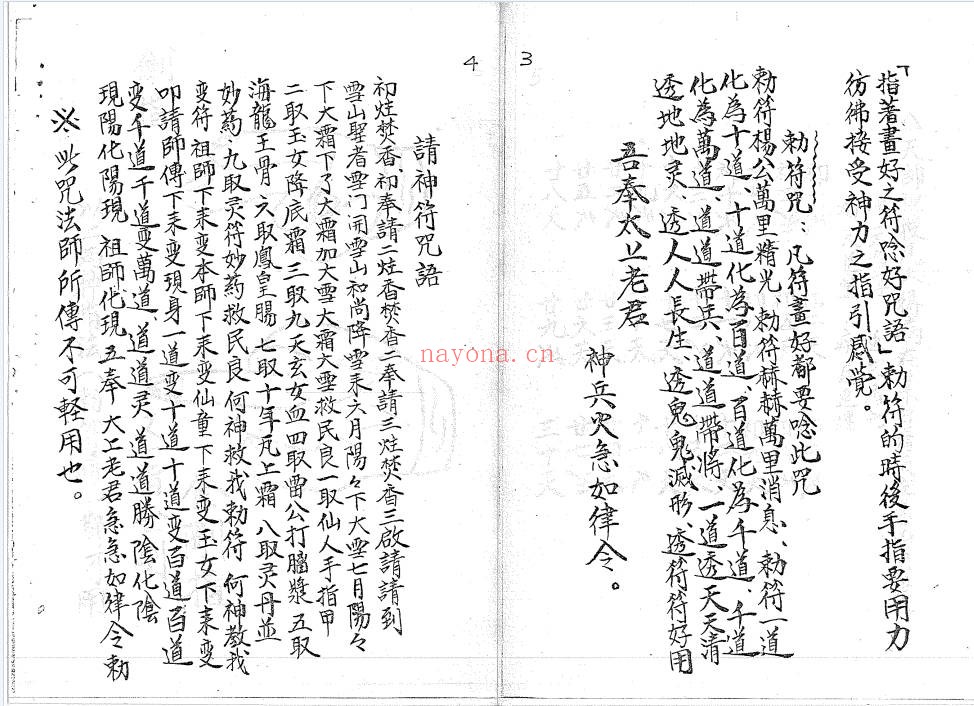 3
「指著畫好之符唸好咒語」勅符的時後手指要用力
彷彿接受神力之指引感覺。
勅符咒：凡符畫好都要唸此咒
勅符楊公萬里精光、勅符赫赫萬里消息、勅符一道
化為十道、十道化為百道、百道化為千道、千道
化為萬道、道道帶兵、道道帶將、一道透天天清
透地地灵、透人人長生、透鬼鬼滅形、透符符好用
吾奉太上老君
神兵火急如律令。
4
請神符咒語
初炷焚香、初奉請二炷香焚香二奉請三炷焚香三啟請請到
雪山聖者雪门開雪山和尚降雪來六月陽々下大雪七月陽々
下大霜下了大霜加大雪大霜大雪救民良一取仙人手指甲
二取玉女降底霜 三取九天玄女血四取雷公打腦漿 五取
海龍王骨、六取鳳皇腸 七取十年凡上霜 八取灵丹並
妙药、九取灵符妙药救民良何神救我勅符 何神教我
变符 祖師下來变本師下來变仙童下來变玉女下來变
叩請師傳下來变現身一道变十道十道变百道百道
变千道千道变萬道 道道灵 道道勝 陰化陰
現陽化陽現 祖師化現 五奉 大上老君急急如律令勅
※ 此咒法師所傳不可軽用也。
nayona.cn